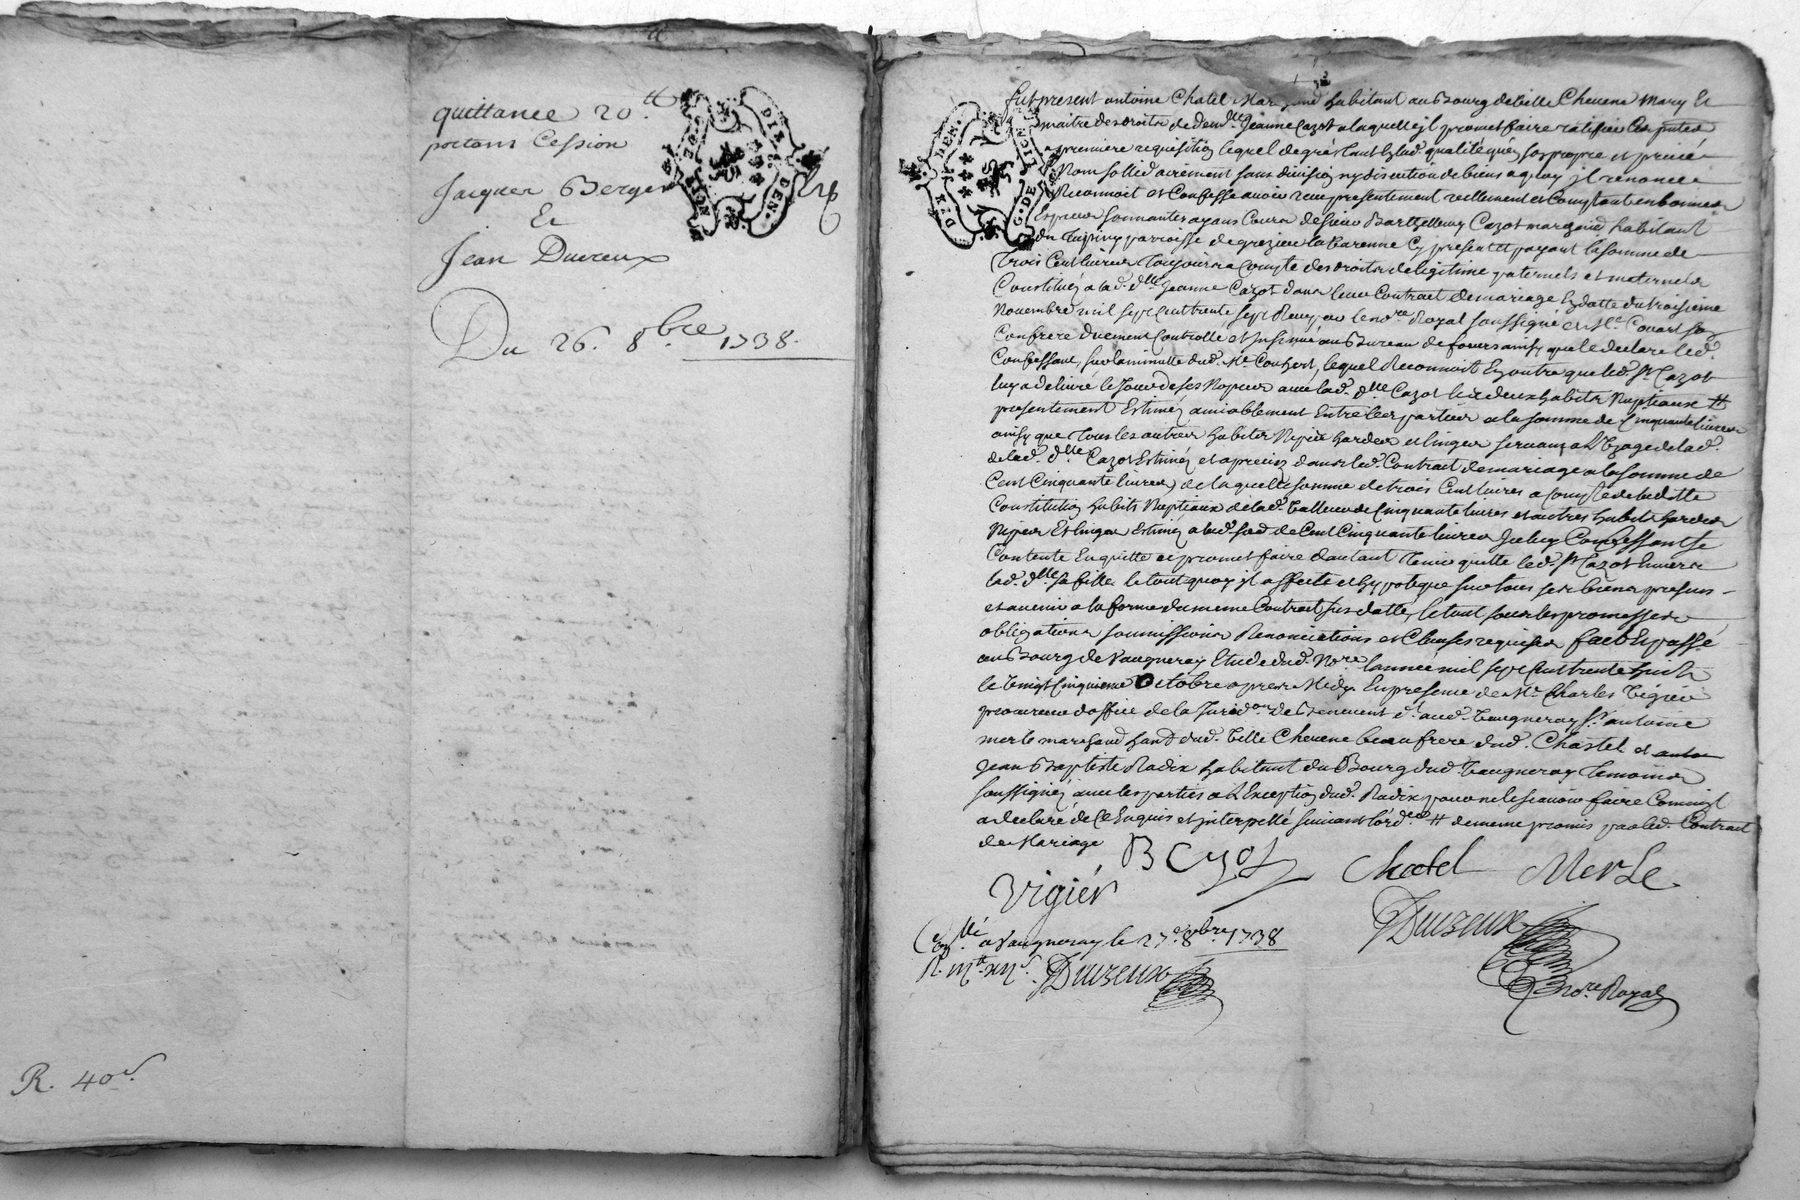 quittance 20.tt
portant Cession
Jacques Berger
Et
Jean Ducreux
Du 26. 8bre 1738.
R. 40s
G. DE LION. DIX DEN.
G. DE LION. DIX DEN.
fut present antoine Chatel Marchand habitant au Bourg de Belle Chevene Mary Et
maitre des droits de dem.lle Jeanne Cazot a laquelle jl promet faire ratifier Ces pntes
a premiere requisition lequel de gré tant Esd. qualité que son propre et privé
Nom sollidairement sans division ny discution de biens a quoy jl renonce
Reconnoit et Confesse avoir reçu presentement reellement et Comptant en bonnes
Espeices sonnantes ayans Cours de sieur Barthellemy Cazot marchand habitant
du Tupiny parroisse de grezieu la Varenne Cy present et payant la somme de
Trois Cent livres Tousjours a Compte des droits de legitime paternels et maternels
Constitués a lad. dlle Jeanne Cazot dans leur Contract de mariage En datte du troisieme
Novembre mil sept Cent trente sept Reçu par le nore Royal soussigné et Me Couhert son
Confrere duement Controllé et Insinué au Bureau de ainsy que le declare led.
Confessant, sur la minutte dud. Me Couhert, lequel Reconnoit En outre que led. Sr Cazot
luy a delivré le Jour de ses Nopces avec lad. dlle Cazot les deux habits Nuptiaux #
presentement Estimés amiablement Entre les parties a la somme de Cinquante livres
ainsy que Tous les autres habits Nipes hardes et linges servans a L'Uzage de lad.
de lad. dlle Cazot Estimés et apreciés dans led. Contract de mariage a la somme de
Cent Cinquante livres, de laquelle somme de trois Cent livres a Compte de ladite
Constitution habits Nuptiaux de lad. valleur de Cinquante livres et autres habits hardes
Nipes Et linges Estimés a lad. so.e de Cent Cinquante livres Jceluy Confessant se
Contente En quitte et promet faire d'autant Tenir quitte led. Sr Cazot Envers
lad. dlle sa fille le tout quoy jl affecte et hypoteque sur tous ses biens presens
et avenir a la forme du meme Contract sus datté, le tout sous les promesses
obligations soumissions Renonciations et Clauses requises fait Et passé
au Bourg de Vaugneray Etude dud. Nore l'année mil sept Cent trente huit
le vingt Cinquieme Octobre apres Midy En presence de Me Charles Vigier
procureur d'office de la Juridon de Benevent et aud. Vaugneray Sr antoine
merle marchand hand dud. Belle Chevene beau frere dud. Chastel et
Jean Baptiste Radix habitant du Bourg dud. Vaugneray Temoins
soussignés avec les parties a L'Exception dud. Radix pour ne le scavoir faire Comme jl
a declaré de Ce Enquis et jnterpellé suivant l'ord.ce # de meme promis par led. Contract
de Mariage
B Cazot Chatel Merle
Vigier
Ducreux
nore. Royal
Con.llé a Vaugneray le 27e 8bre 1738
Ducreux